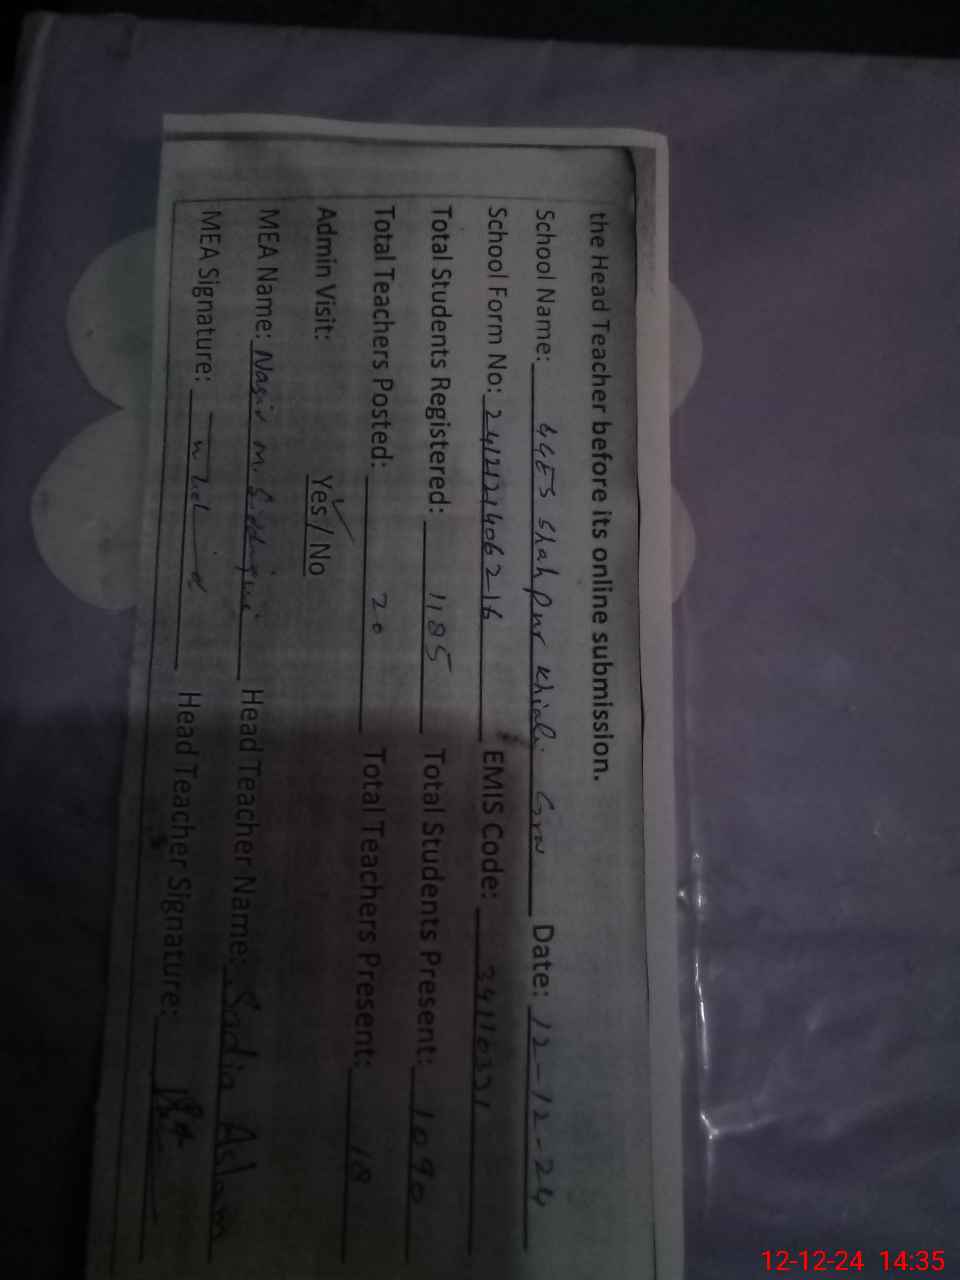 the Head Teacher before its online submission.
School Name: GGES Shahpur Khiali Grw Date: 12-12-24
School Form No: 241212140621b EMIS Code: 34110321
Total Students Registered: 1185 Total Students Present: 1090
Total Teachers Posted: 20 Total Teachers Present: 18
Admin Visit: Yes / No
MEA Name: Nasir m. Siddiqui Head Teacher Name: Sadia Aslam
MEA Signature: Head Teacher Signature:
12-12-24 14:35